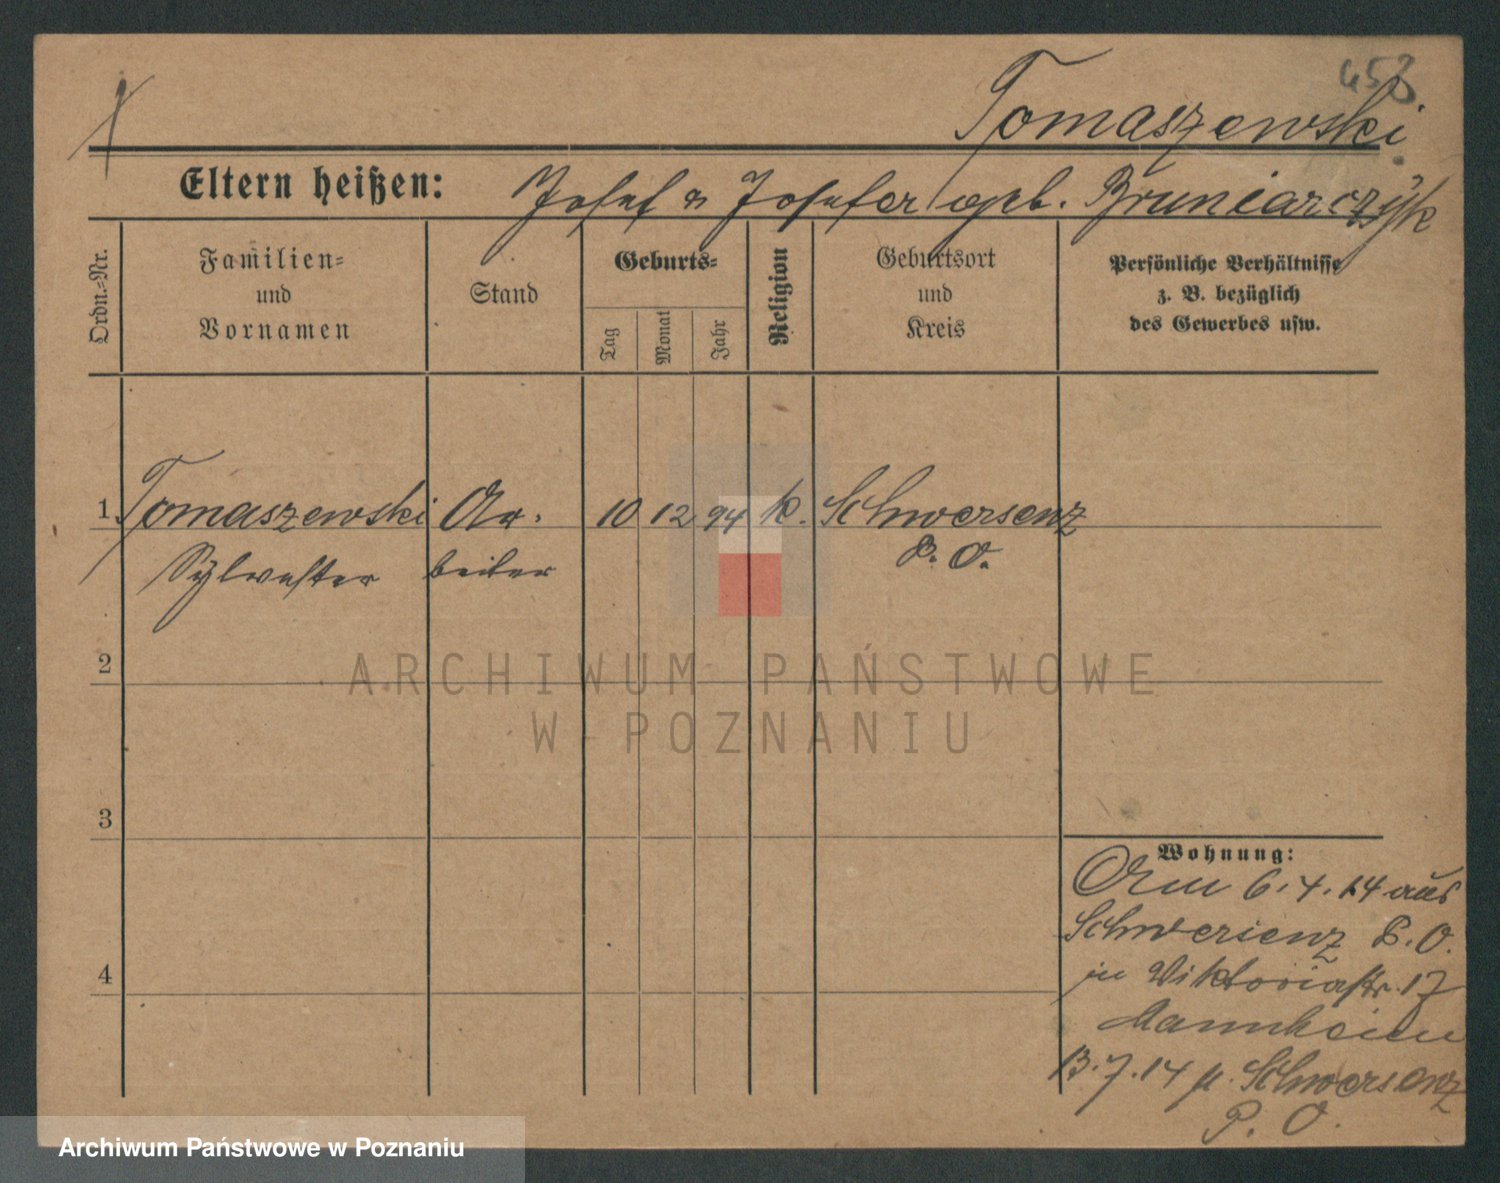 453
Tomaszewski
Eltern heißen: Josef u Josefa geb. Bruniarczyk
Ordn.=Nr.
Familien=
und
Vornamen
Stand
Geburts=
Tag
Monat
Jahr
Religion
Geburtsort
und
Kreis
Persönliche Verhältnisse
z. B. bezüglich
des Gewerbes usw.
1 Tomaszewski Ar. 10 12 94 k. Schwersenz
Sylvester beiter P. O.
2
ARCHIWUM PAŃSTWOWE
W POZNANIU
3
Wohnung:
Am 6.4.14 aus
Schwersenz P. O.
in Viktoriastr. 17
13.7.14 Schwersenz
P. O.
4
Archiwum Państwowe w Poznaniu